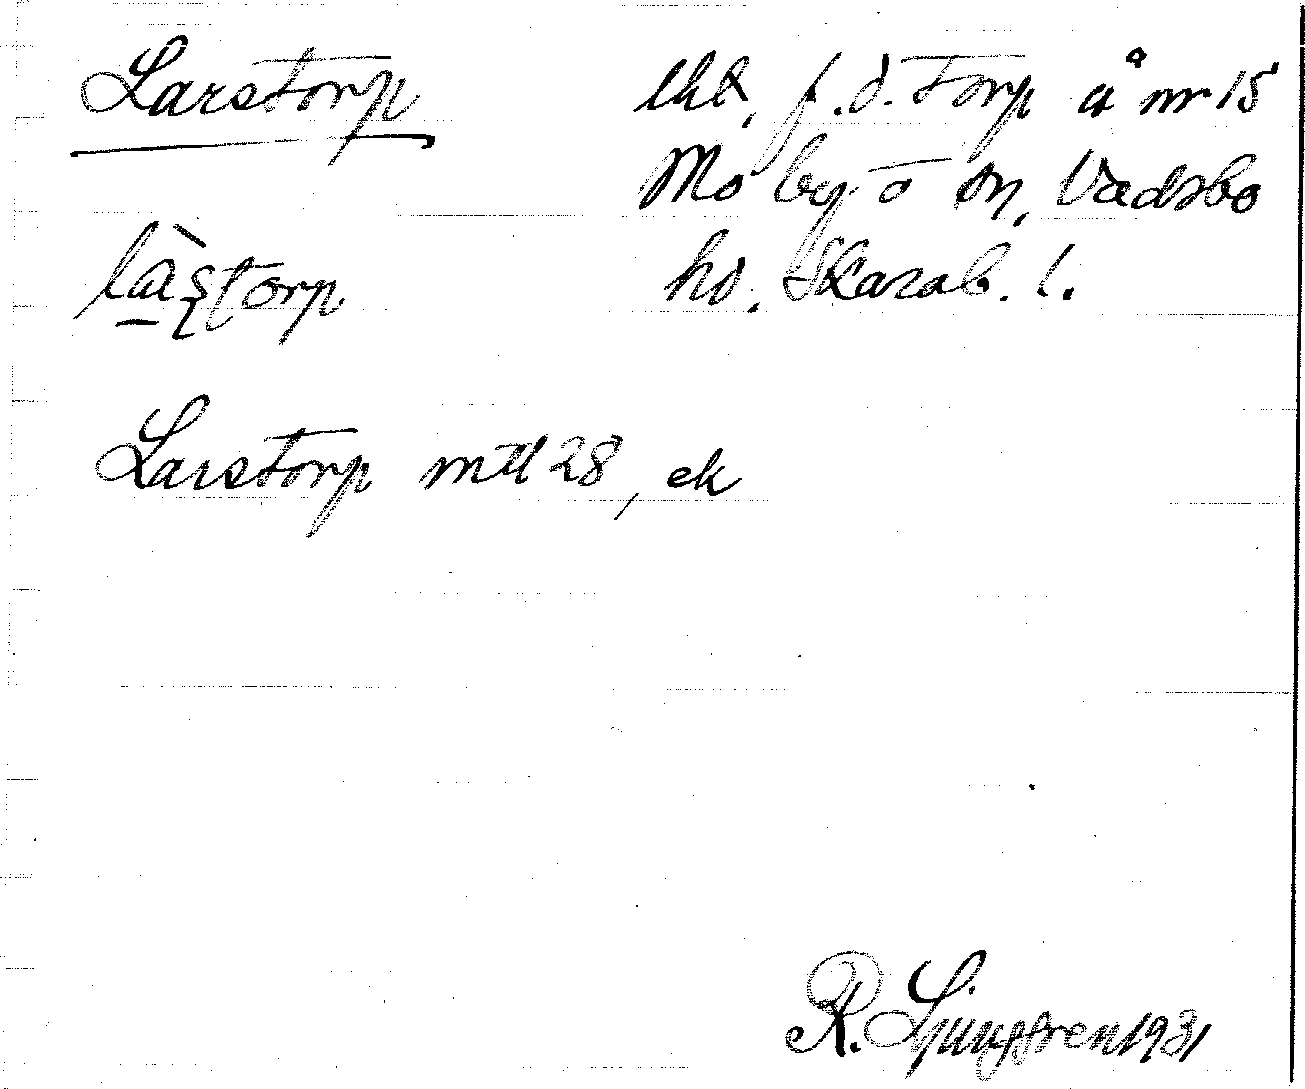 Larstorp
lht, f.d. torp å nr 15
Mo by o sn, Vadsbo
hd. Skarab. l.
làstorp.
Larstorp mtl 28, ek
R. Ljunggren 1931